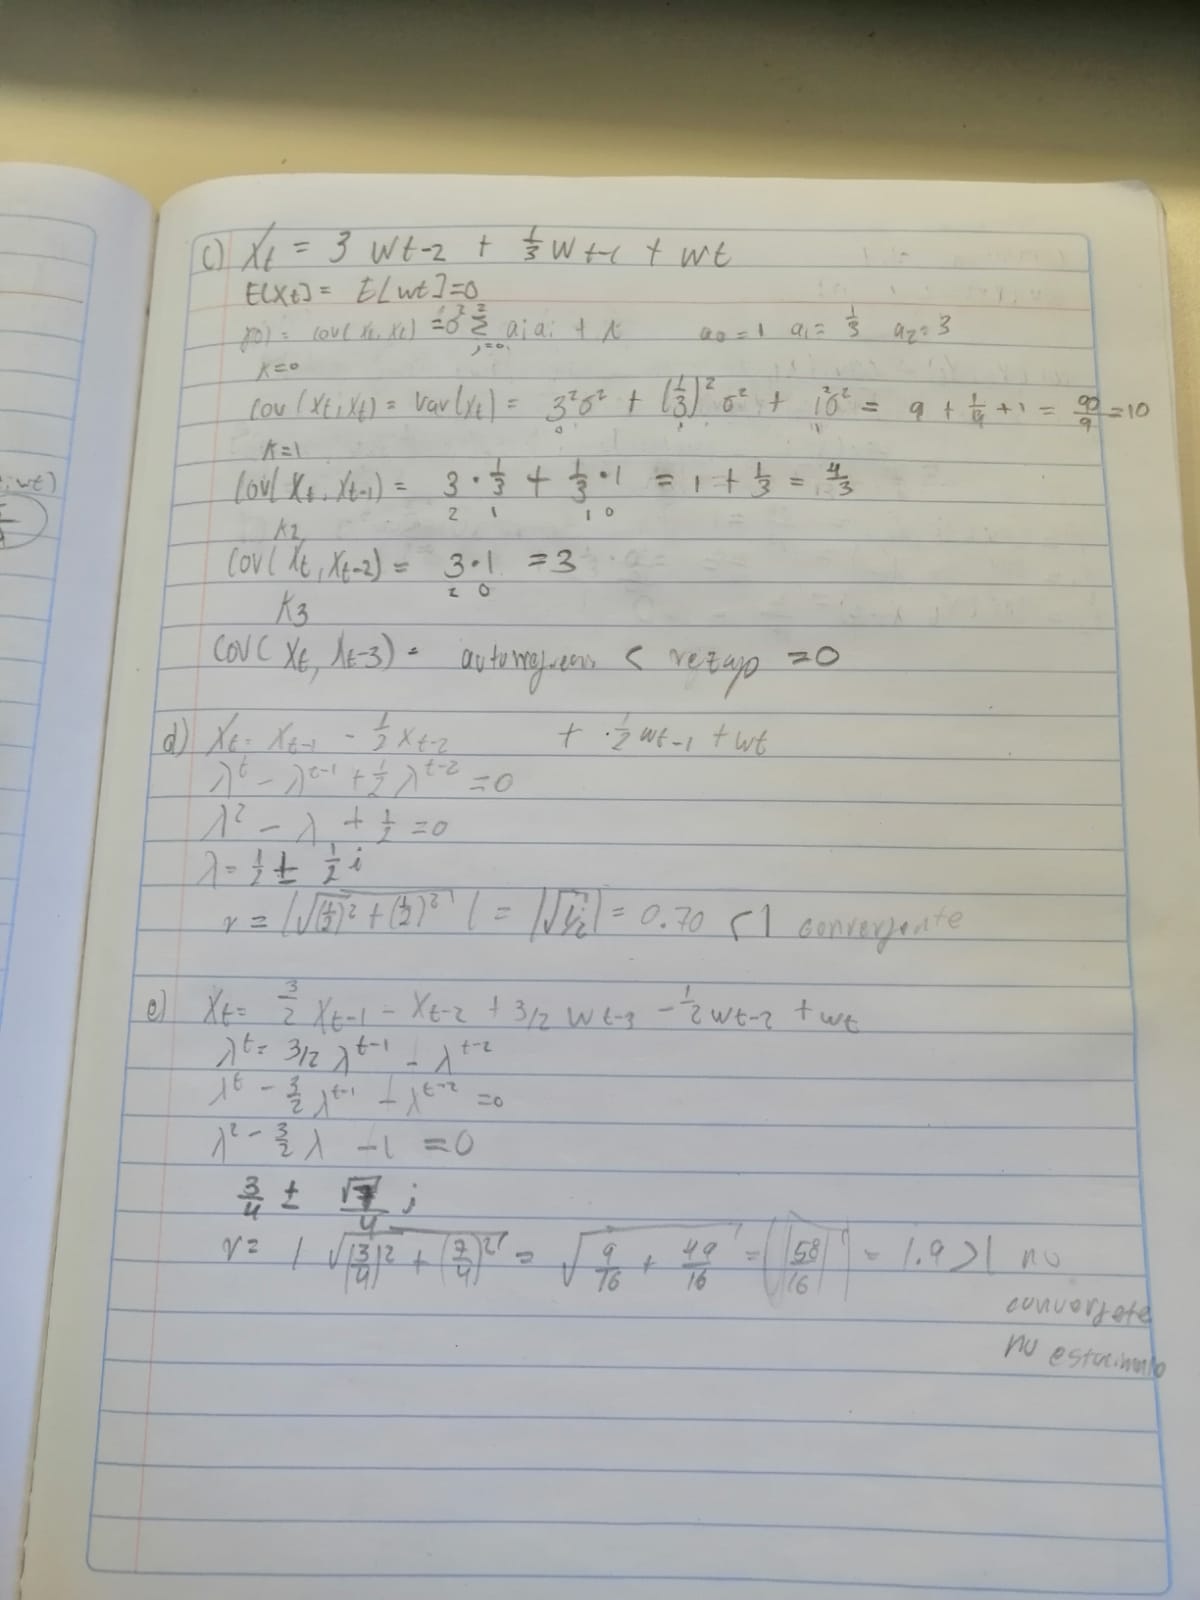 c) Xt = 3 wt-2 + 1/3 w t-1 + wt
E[Xt] = E[wt] = 0
cov(Xt, Xt) = σ² Σ j=0 2 ai ai + k a0 = 1 a1 = 1/3 a2 = 3
K=0
Cov(Xt, Xt) = Var(Xt) = 3²σ² + (1/3)²σ² + 1²σ² = 9 + 1/9 + 1 = 90/9 = 10
K=1
Cov(Xt, Xt-1) = 3 · 1/3 + 1/3 · 1 = 1 + 1/3 = 4/3
2 1 1 0
K2
Cov(Xt, Xt-2) = 3·1 = 3
2 0
K3
Cov(Xt, Xt-3) = < rezago = 0
d) Xt = Xt-1 - 1/2 Xt-2 + 1/2 wt-1 + wt
λ^t - λ^t-1 + 1/2 λ^t-2 = 0
λ² - λ + 1/2 = 0
λ = 1/2 ± 1/2 i
r = |√(1/2)² + (1/2)²| = |√1/2| = 0.70 < 1 convergente
e) Xt = 3/2 Xt-1 - Xt-2 + 3/2 wt-3 - 1/2 wt-2 + wt
λ^t = 3/2 λ^t-1 - λ^t-2
λ^t - 3/2 λ^t-1 + λ^t-2 = 0
λ² - 3/2 λ - 1 = 0
3/4 ± √7/4 i
r = |√(3/4)² + (7/4)²| = √9/16 + 49/16 = |√58/16| = 1.9 > 1 no
convergete
no estacionario